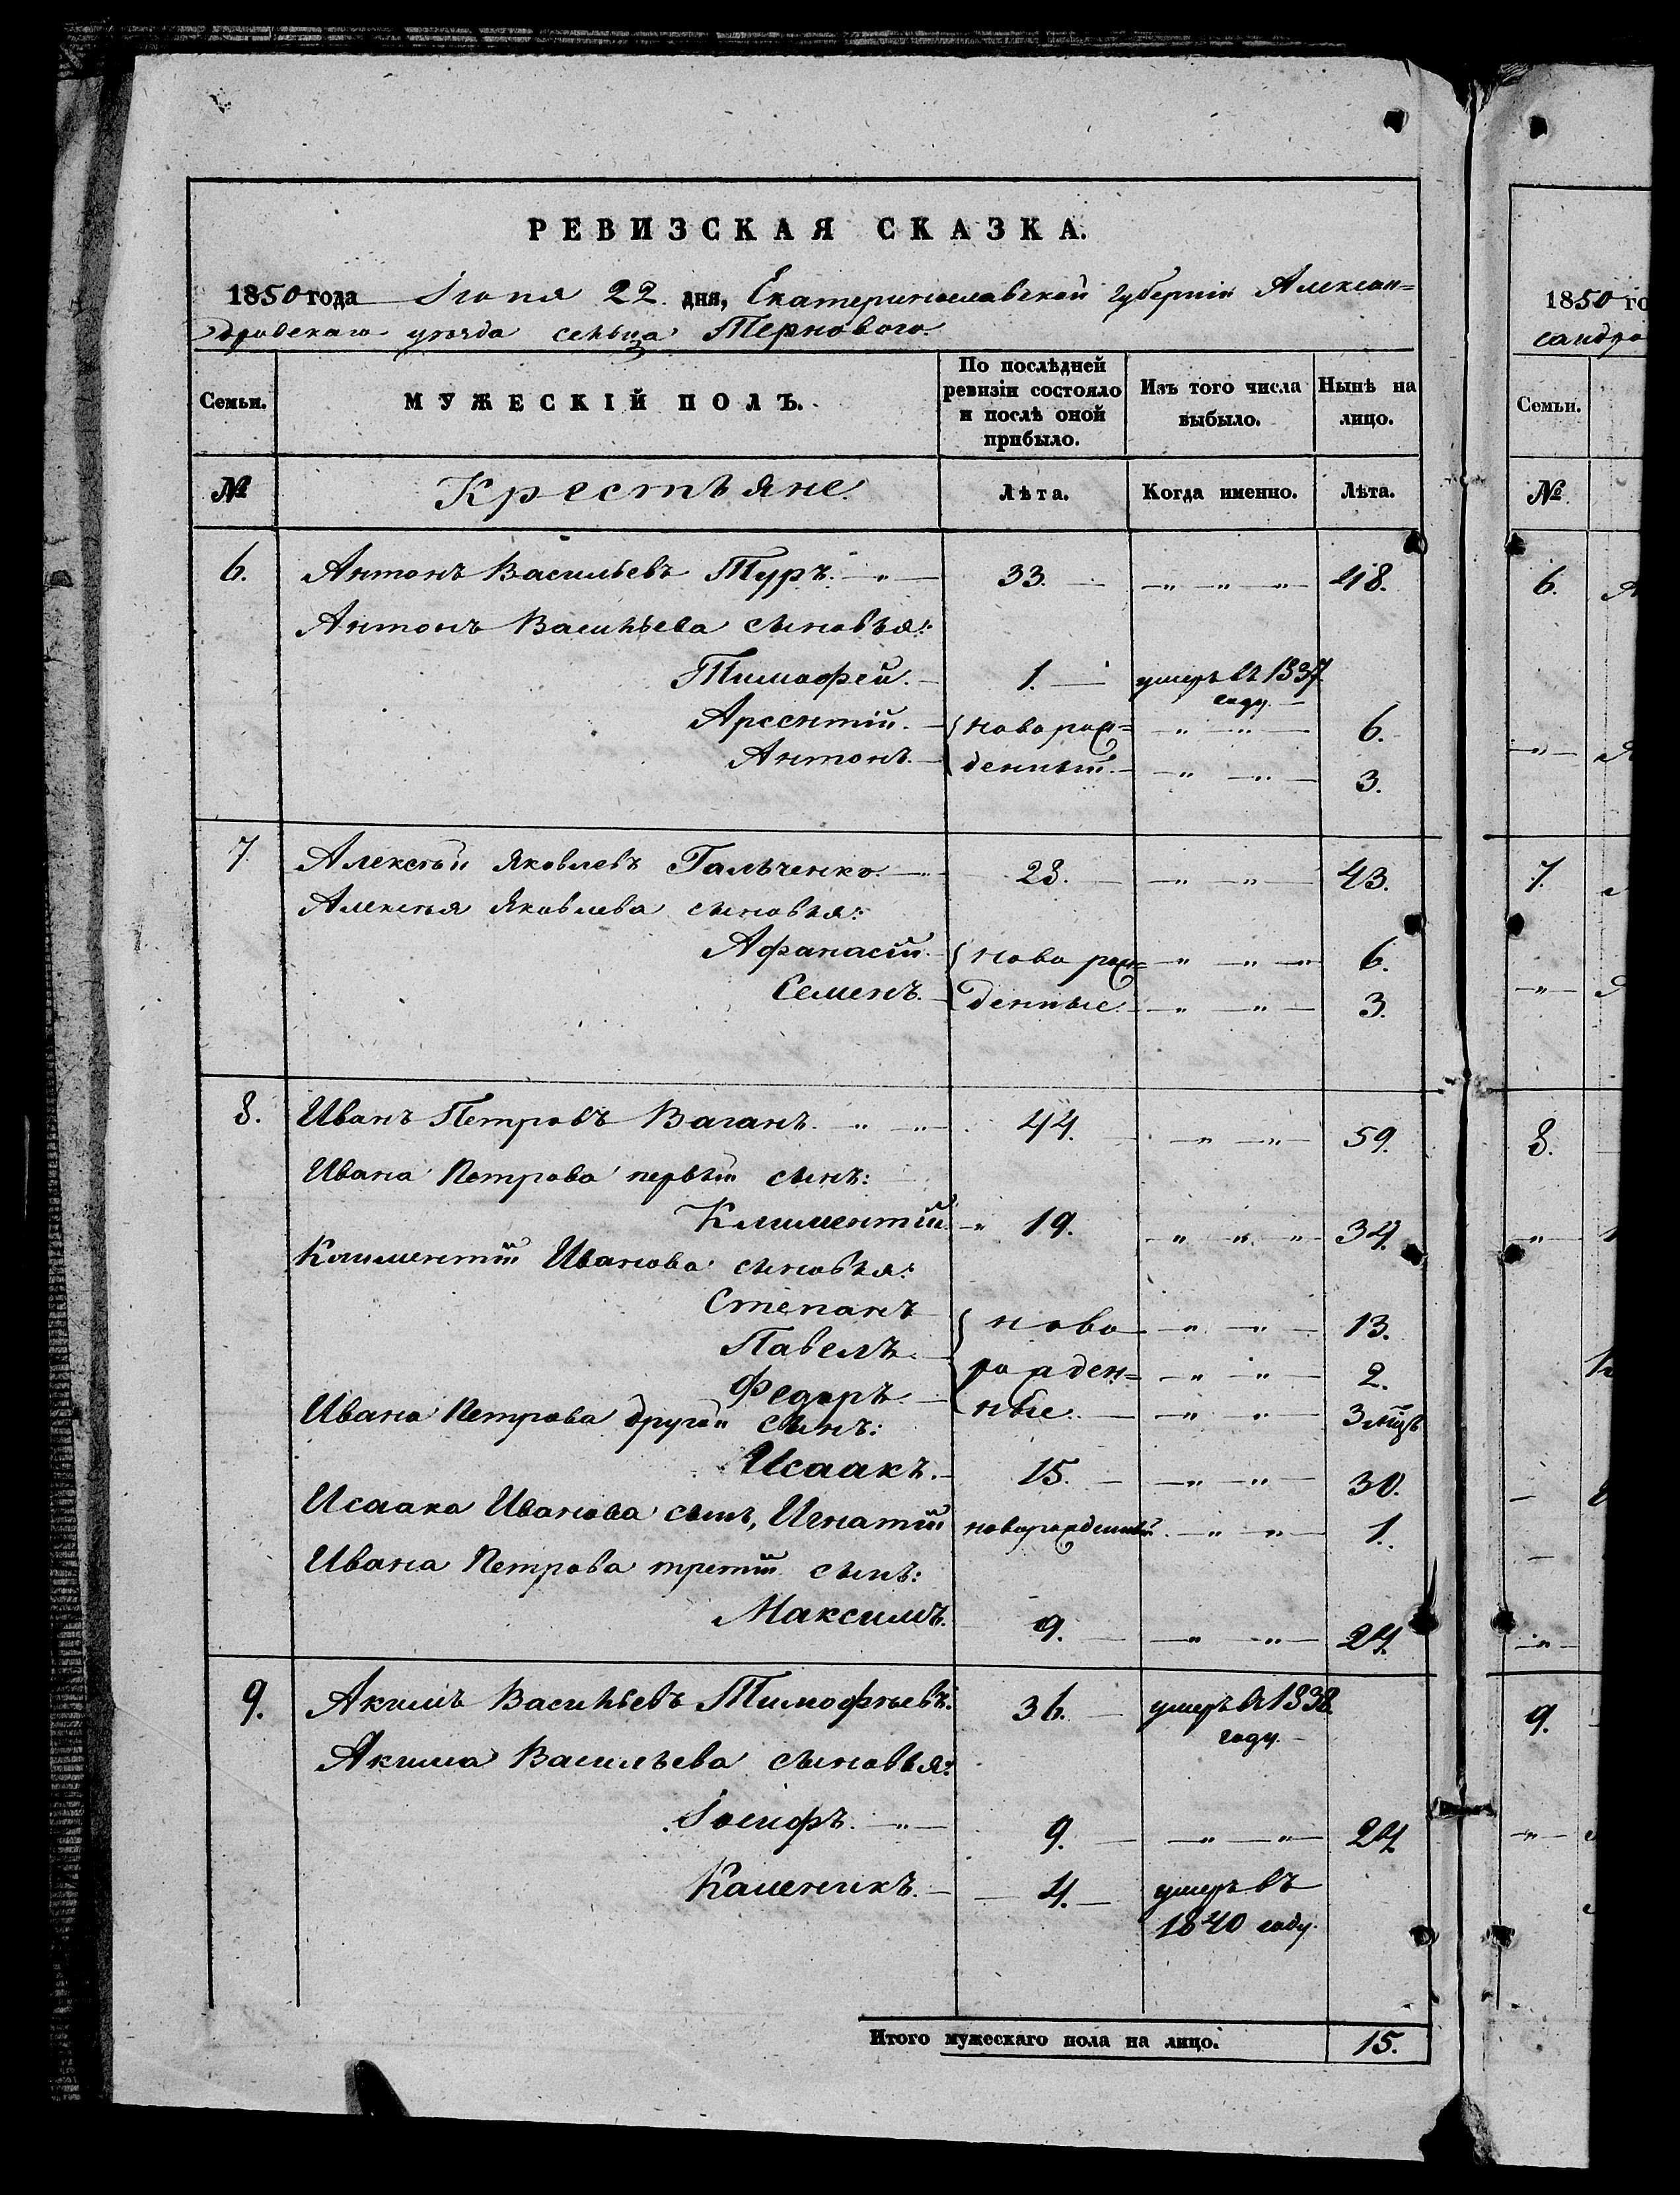 РЕВИЗСКАЯ СКАЗКА.
1850 года Іюня 22 дня, Екатеринославской Губерніи Алексан=
дровскаго уѣзда сельца Тернового.
Семьи. МУЖЕСКІЙ ПОЛЪ. По послѣдней ревизіи состояло и послѣ оной прибыло. Изъ того числа выбыло. Нынѣ на лицо.
№ Крестьяне. Лѣта. Когда именно. Лѣта.
6. Антонъ Васильевъ Туръ. 33. 48.
Антонъ Васильева сыновья:
Тимофей. 1. умеръ въ 1837
году.
Арсентій. новорож= 6.
Антонъ. денный. 3.
7 Алексѣй Яковлевъ Гальченко 28. 43.
Алексѣя Яковлева сыновья:
Афанасій. ново рож= 6.
Семенъ. денные. 3.
8. Иванъ Петровъ Ваганъ. 44. 59.
Ивана Петрова первый сынъ:
Климентій. 19. 34.
Климентій Иванова сыновья:
Степанъ ново 13.
Павелъ. рожден= 2.
Федоръ. ные. 3 мѣц
Ивана Петрова другой сынъ:
Исаакъ. 15. 30.
Исаака Иванова сынъ, Игнатій новорожденный. 1.
Ивана Петрова третій сынъ:
Максимъ. 9. 24.
9. Акимъ Васильевъ Тимофѣевъ. 36. умеръ въ 1838.
году.
Акима Васильева сыновья:
Іосифъ. 9. 24
Каленикъ. 4. умеръ въ
1840 году.
Итого мужескаго пола на лицо. 15.
1850 го
сандро
Семьи.
№
6.
7.
8.
9.